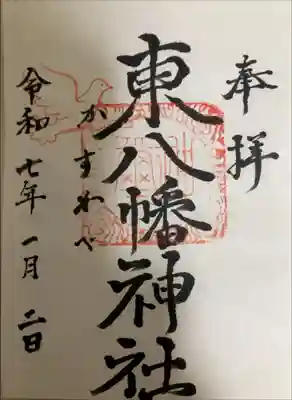 奉拝
東八幡神社
かすかべ
令和七年一月二日